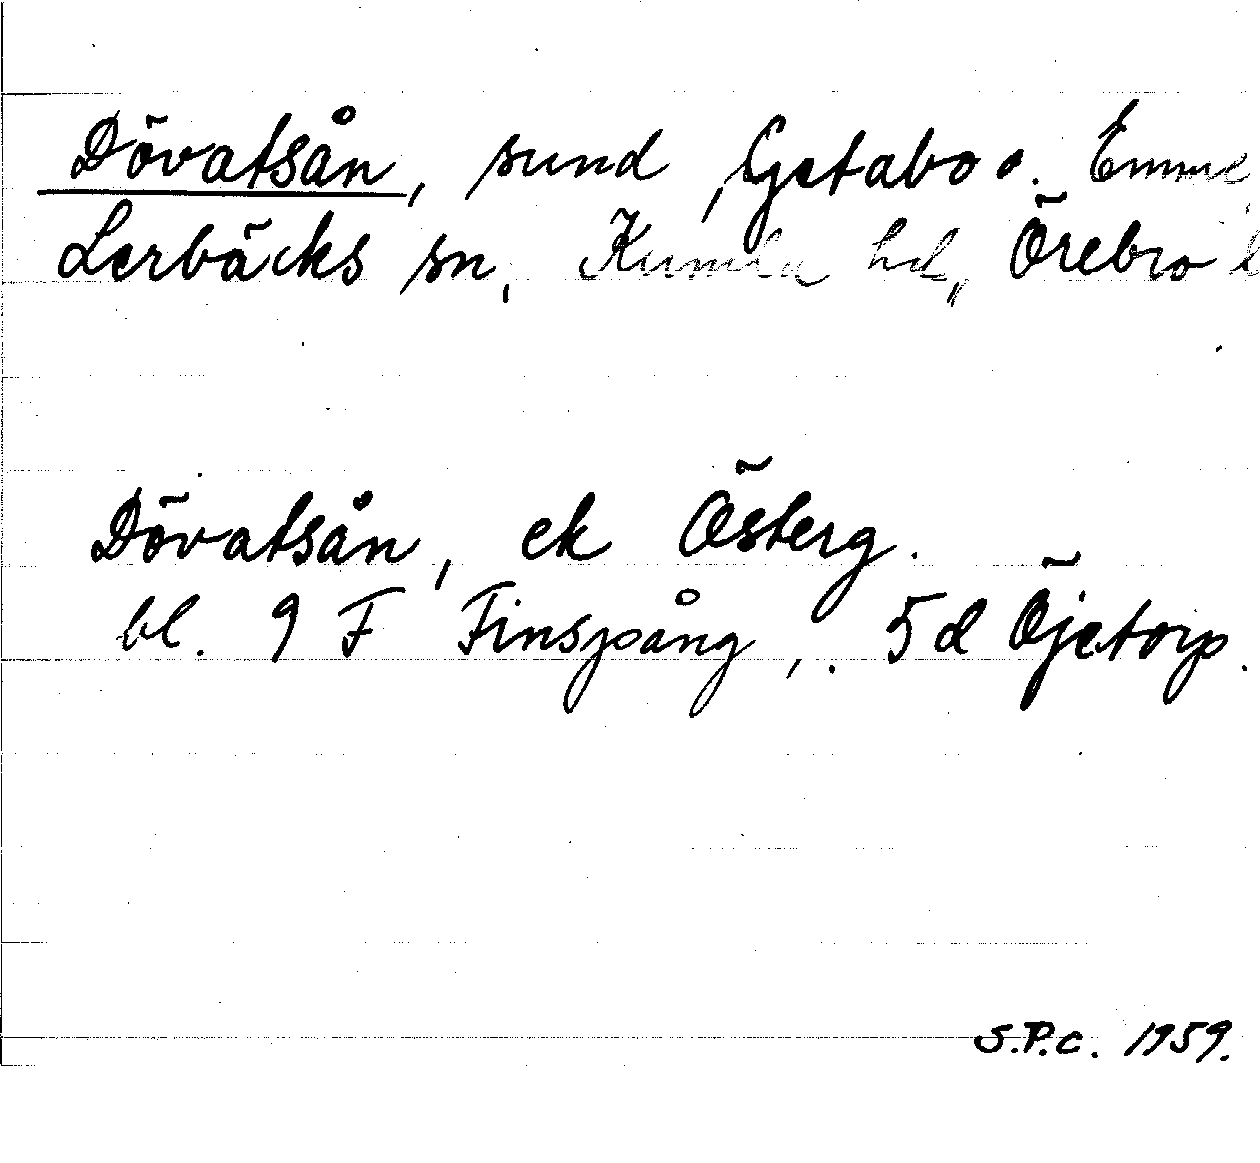 Dövatsån, sund, Getabo o. Emme
Lerbäcks sn, Kumla hd, Örebro l
Dövatsån, ek Österg.
bl. 9 F Finspång, . 5 d Öjetorp.
S.P.C. 1959.